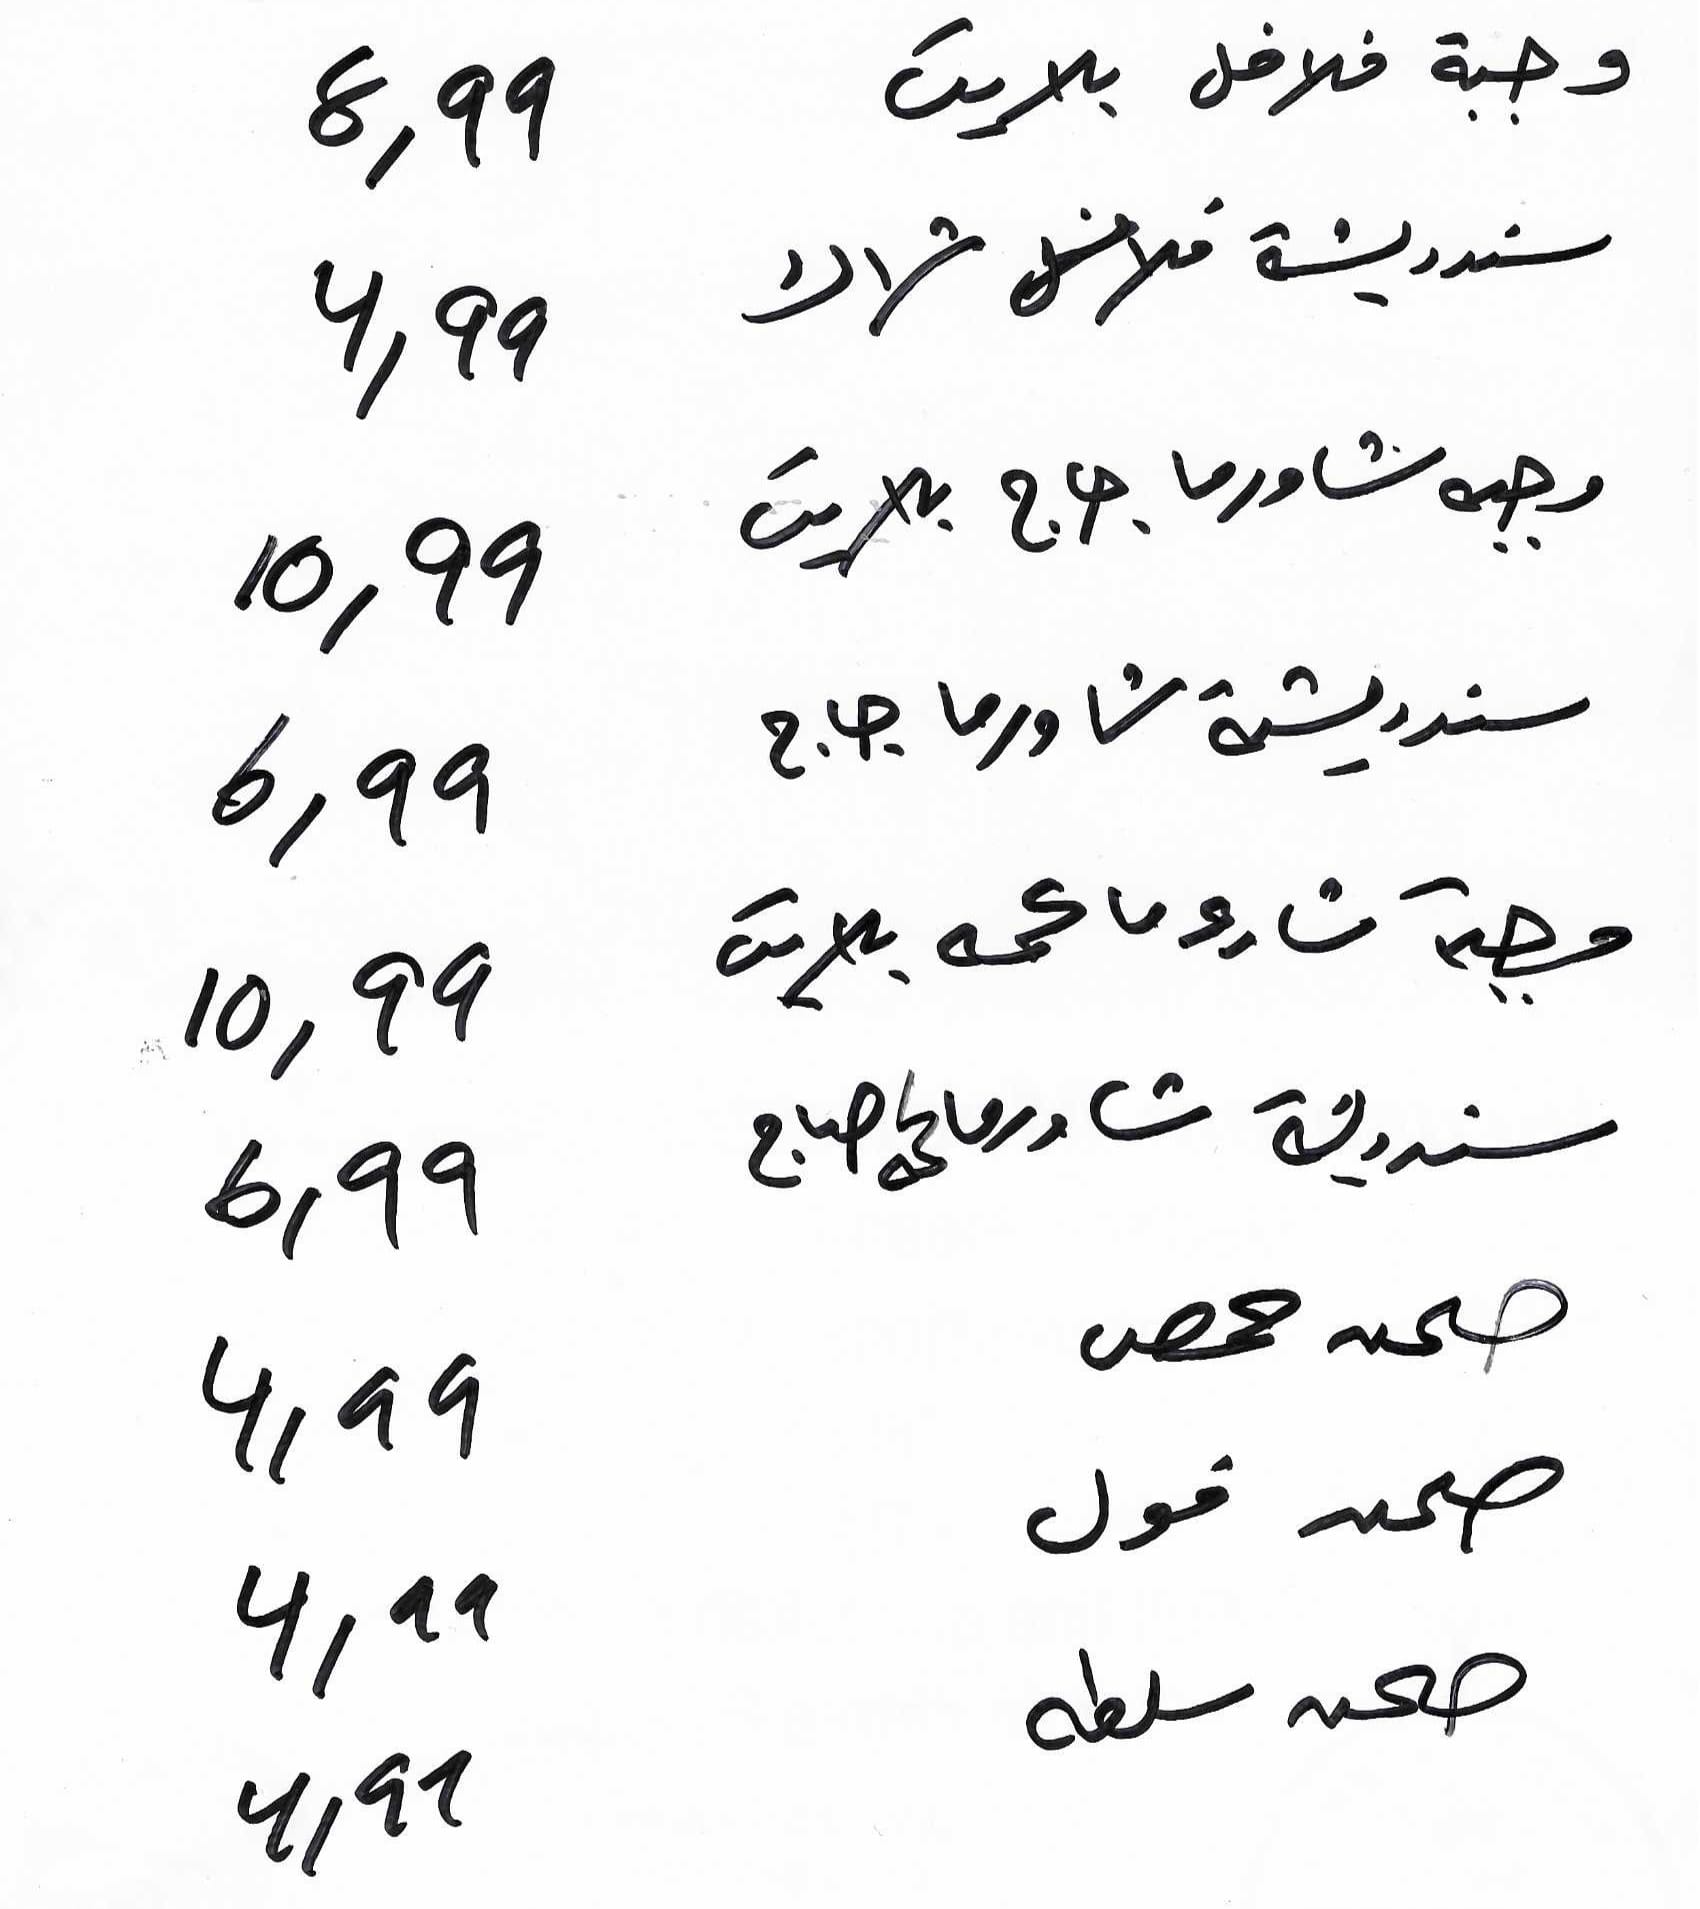 وجبة فلافل بلايت 8,99
سندويشة فلافل 4,99
وجبه شاورما جاج بلايت 10,99
سندويشة شاورما جاج 6,99
وجبة شاروما لحمه بلايت 10,99
سندويشة شاورما لحمه صاج 6,99
صحن حمص 4,99
صحن فول 4,99
صحن سلطه 4,99